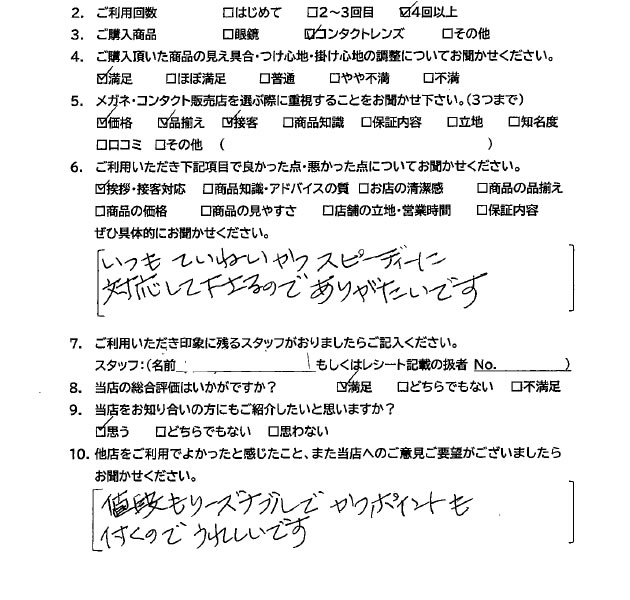 2. ご利用回数 □はじめて □2～3回目 ☑4回以上
3. ご購入商品 □眼鏡 ☑コンタクトレンズ □その他
4. ご購入頂いた商品の見え具合・つけ心地・掛け心地の調整についてお聞かせください。
☑満足 □ほぼ満足 □普通 □やや不満 □不満
5. メガネ・コンタクト販売店を選ぶ際に重視することをお聞かせ下さい。（3つまで）
☑価格 ☑品揃え ☑接客 □商品知識 □保証内容 □立地 □知名度
□口コミ □その他 （ ）
6. ご利用いただき下記項目で良かった点・悪かった点についてお聞かせください。
☑挨拶・接客対応 □商品知識・アドバイスの質 □お店の清潔感 □商品の品揃え
□商品の価格 □商品の見やすさ □店舗の立地・営業時間 □保証内容
ぜひ具体的にお聞かせください。
いつも ていねいかつ スピーディーに
対応して下さるので ありがたいです
7. ご利用いただき印象に残るスタッフがおりましたらご記入ください。
スタッフ：（名前 もしくはレシート記載の扱者 No. ）
8. 当店の総合評価はいかがですか？ ☑満足 □どちらでもない □不満足
9. 当店をお知り合いの方にもご紹介したいと思いますか？
☑思う □どちらでもない □思わない
10. 他店をご利用でよかったと感じたこと、また当店へのご意見ご要望がございましたら
お聞かせください。
値段もリーズナブルで かつポイントも
付くので うれしいです